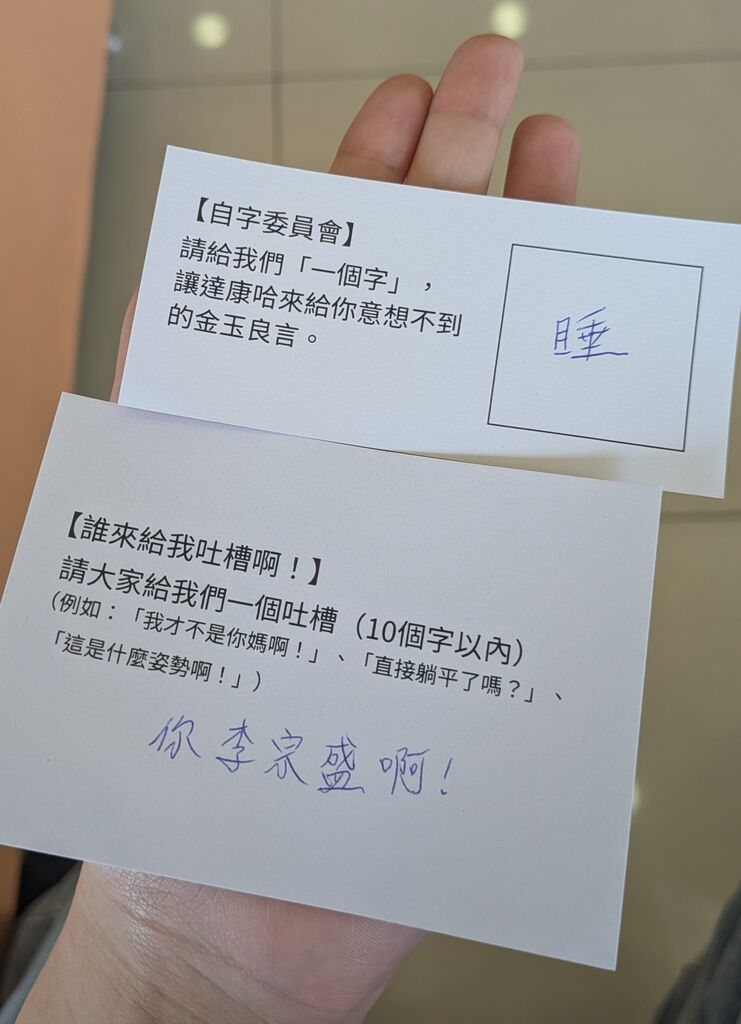 【自字委員會】
請給我們「一個字」，
讓達康哈來給你意想不到
的金玉良言。
睡
【誰來給我吐槽啊！】
請大家給我們一個吐槽（10個字以內）
（例如：「我才不是你媽啊！」、「直接躺平了嗎？」、
「這是什麼姿勢啊！」）
你李宗盛啊！